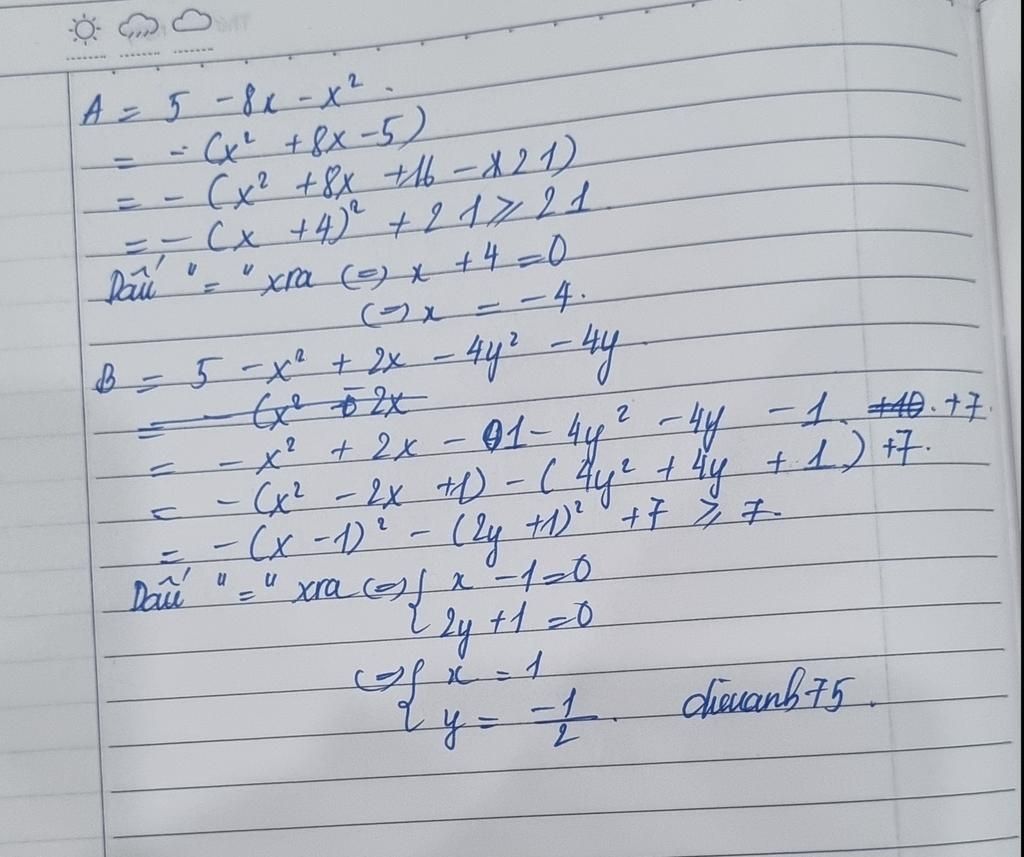 A = 5 - 8x - x².
= - (x² + 8x - 5)
= - (x² + 8x + 16 - 21)
= - (x + 4)² + 21 ≥ 21
Dấu "=" xra (=) x + 4 = 0
(=) x = -4.
B = 5 - x² + 2x - 4y² - 4y
= - (x² - 2x
= - x² + 2x - 1 - 4y² - 4y - 1 +10. +7.
= - (x² - 2x + 1) - (4y² + 4y + 1) + 7.
= - (x - 1)² - (2y + 1)² + 7 ≥ 7.
Dấu "=" xra (=) { x - 1 = 0
{ 2y + 1 = 0
(=) { x = 1
{ y = -1/2. dieuanh75.